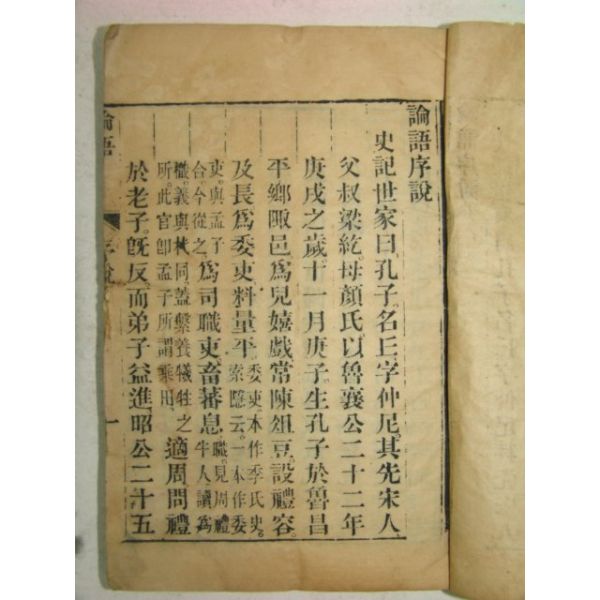 論語序說
史記世家曰孔子。名丘字仲尼。其先宋人。
父叔梁紇。母顏氏以魯襄公二十二年
庚戌之歲。十一月庚子。生孔子於魯昌
平鄉陬邑爲兒嬉戲常陳俎豆設禮容。
及長爲委吏料量平。委吏本作季氏史。
索隱云。一本作委
吏。與孟子
合今從之。爲司職吏畜蕃息職。見周禮
牛人讀爲
樴。義與杙同。蓋繫養犧牲之
所。此官卽孟子所謂乘田。適周問禮
於老子。旣反而弟子益進。昭公二十五
論語
序說
一